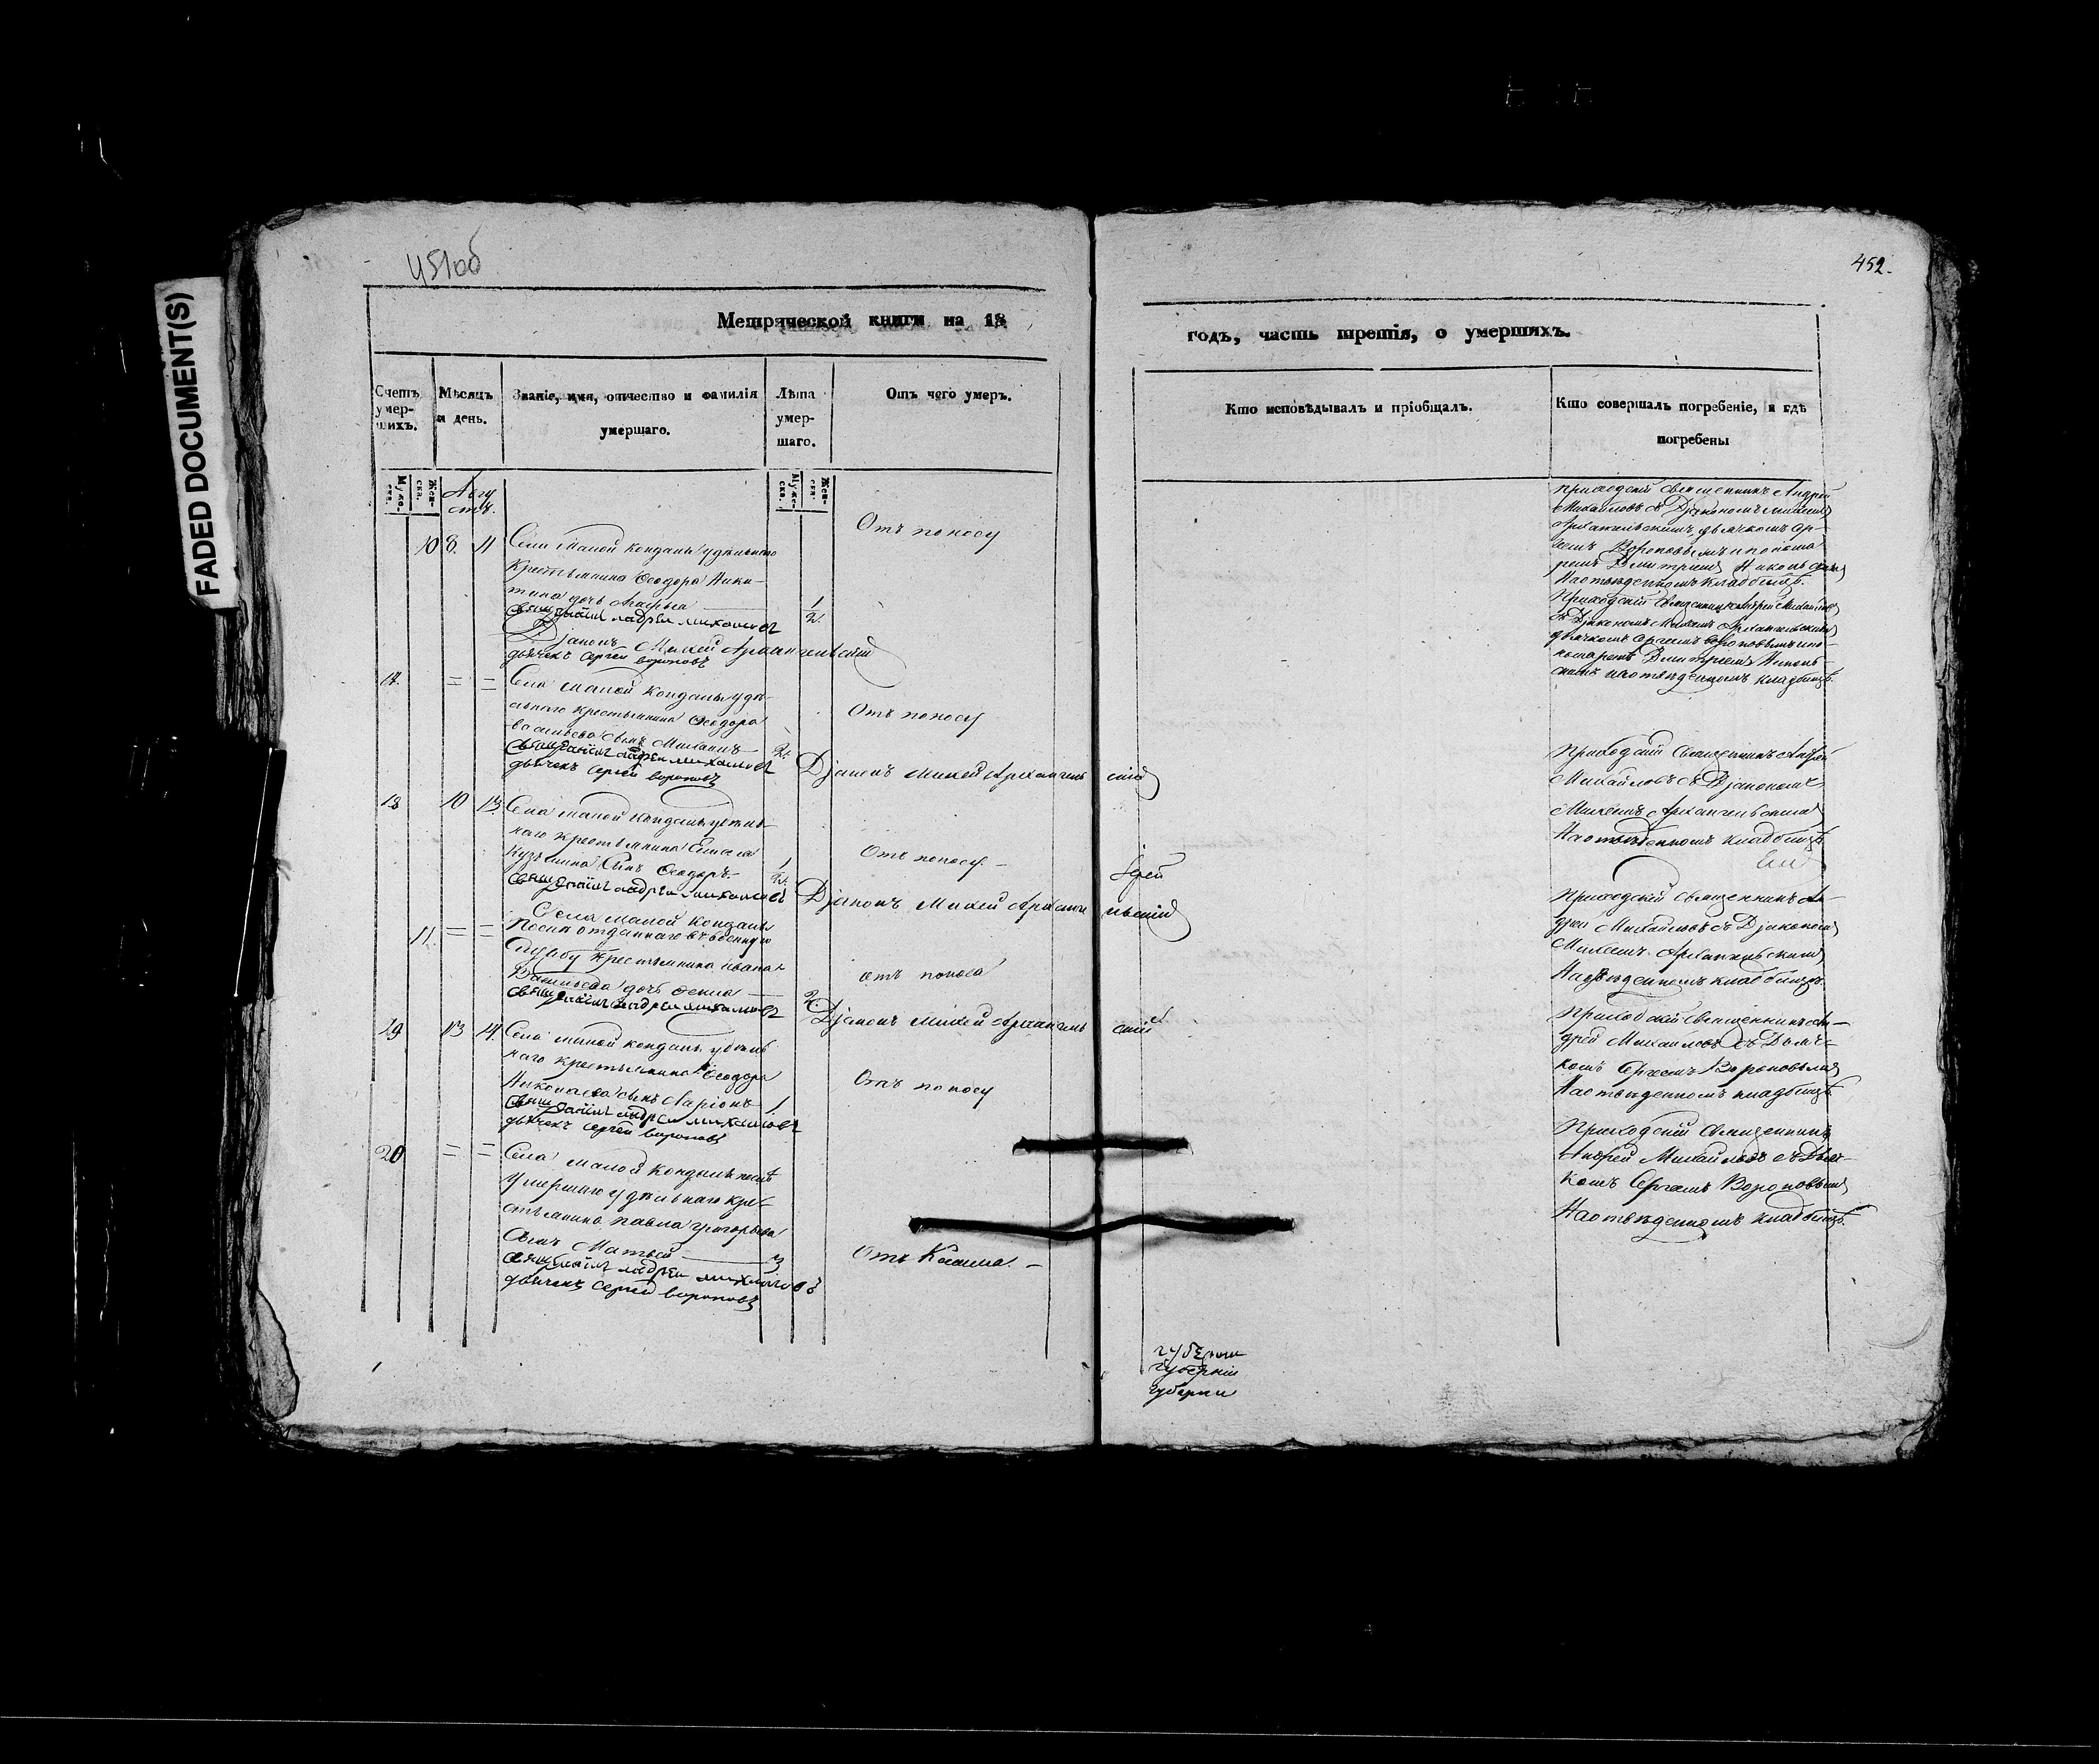 FADED DOCUMENT(S)
451об
452.
Метрической книги на 18
годъ, часть третія, о умершихъ.
Счетъ умер-шихъ.
Мѣсяцъ и день.
Званіе, имя, отчество и фамилія умершаго.
Лѣта умер-шаго.
Отъ чего умеръ.
Кто исповѣдывалъ и пріобщалъ.
Кто совершалъ погребеніе, и гдѣ погребены
Муже-ска.
Жен-ска.
Авгу
стъ.
Муже-ска.
Жен-ска.
10 8. 11
Села Малой Конданы удѣльнаго
крестьянина Ѳеодора Ники-
тина дочь Агафья
1/2.
Отъ поносу
Андрей Михайловъ
Діаконъ Михей Архангельскій
дьячекъ Сергей Вороновъ
приходскій священникъ Андрей
Михайловъ съ Діакономъ Михеемъ
Архангельскимъ, дьячкомъ Сер-
геемъ Вороновымъ и понома
ремъ Дмитріемъ
На отведенномъ кладбищѣ.
17. = =
Села Малой Конданы удѣ-
льнаго крестьянина Ѳеодора
Васильева сынъ
2.
Отъ поносу
Андрей Михайловъ
дьячекъ Сергей Вороновъ
Діаконъ Михей Архангельскій
Приходскій Священникъ Андрей Михайловъ
съ Діакономъ Михеемъ Архангельскимъ
дьячкомъ Сергеемъ Вороновымъ и по-
номаремъ Дмитріемъ
на отведенномъ кладбищѣ.
18 10 13.
Села Малой Конданы удѣль-
наго крестьянина
Кузьмина Сынъ Ѳеодоръ.
1/2.
Отъ поносу. –
Андрей Михайловъ
Діаконъ Михей Архангельскій
Іерей
Приходскій Священникъ Андрей
Михайловъ съ Діакономъ
Михеемъ Архангельскимъ
На отведенномъ кладбищѣ
11. = =
Села Малой Конданы
После отданнаго въ военную
Службу крестьянина Ивана
дочь Ѳекла
2.
отъ поноса
Андрей Михайловъ
Діаконъ Михей Архангельскій
Приходскій Священникъ Ан-
дрей Михайловъ съ Діакономъ
Михеемъ Архангельскимъ
На отведенномъ кладбищѣ.
19 13 14.
Села Малой Конданы удѣль
наго крестьянина Ѳеодора
Николаева сынъ Ларіонъ
1
Отъ поносу
Андрей Михайловъ
дьячекъ Сергей Вороновъ
Приходскій Священникъ Ан-
дрей Михайловъ съ Дьяч-
комъ Сергеемъ Вороновымъ
На отведенномъ кладбищѣ
20 = =
Села Малой Конданы послѣ
Умершаго удѣльнаго кре-
стьянина Павла Григорьева
Сынъ Матвей
3
Отъ Кашля. –
Андрей Михайловъ
дьячекъ Сергей Вороновъ
Приходскій Священникъ
Андрей Михайловъ съ Дьяч-
комъ Сергеемъ Вороновымъ
На отведенномъ кладбищѣ.
губерніи
губерніи